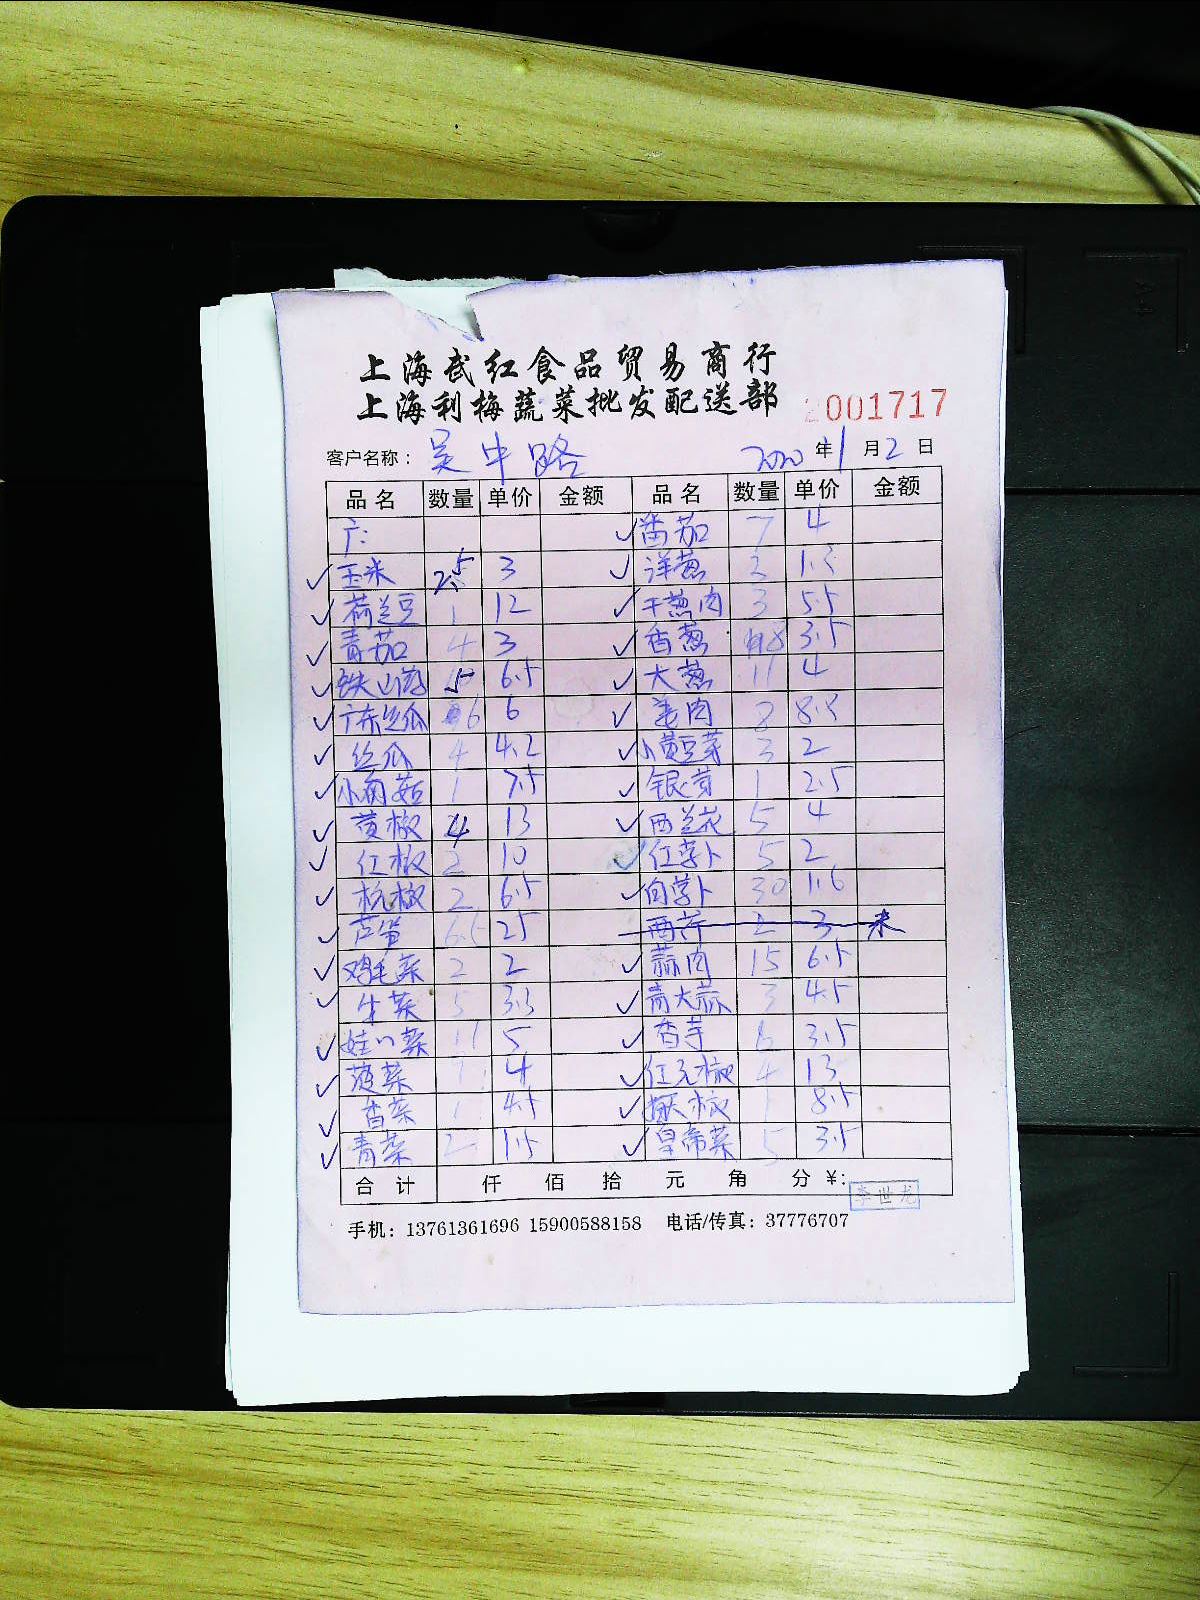 上海武红食品贸易商行
上海利梅蔬菜批发配送部 2001717
客户名称： 吴中路 2020 年 1 月 2 日
品名 数量 单价 金额 品名 数量 单价 金额
广: ✓番茄 7 4
✓玉米 2.5 3 ✓洋葱 2 1.3
✓荷兰豆 1 12 ✓干葱肉 3 5.5
✓青茄 4 3 ✓香葱 8 3.5
✓铁山药 5 6.5 ✓大葱 11 4
✓广东丝瓜 6 6 ✓姜肉 8.5
✓丝瓜 4 4.2 ✓小黄豆芽 3 2
✓小菌菇 1 7.5 ✓银芽 1 2.5
✓黄椒 4 13 ✓西兰花 5 4
✓红椒 2 10 ✓红萝卜 5 2
✓杭椒 2 6.5 ✓白萝卜 30 1.6
✓芦笋 6.5 25 西芹 2 3 未
✓鸡毛菜 2 2 ✓蒜肉 15 6.5
✓生菜 5 3.3 ✓青大蒜 3 4.5
✓娃娃菜 11 5 ✓香芋 6 3.5
✓菠菜 7 4 ✓红尖椒 4 13
✓香菜 1 4.5 ✓ 1 8.5
✓青菜 2 1.5 ✓皇帝菜 5 3.5
合计 仟 佰 拾 元 角 分 ¥:
李世龙
手机：13761361696 15900588158 电话/传真：37776707